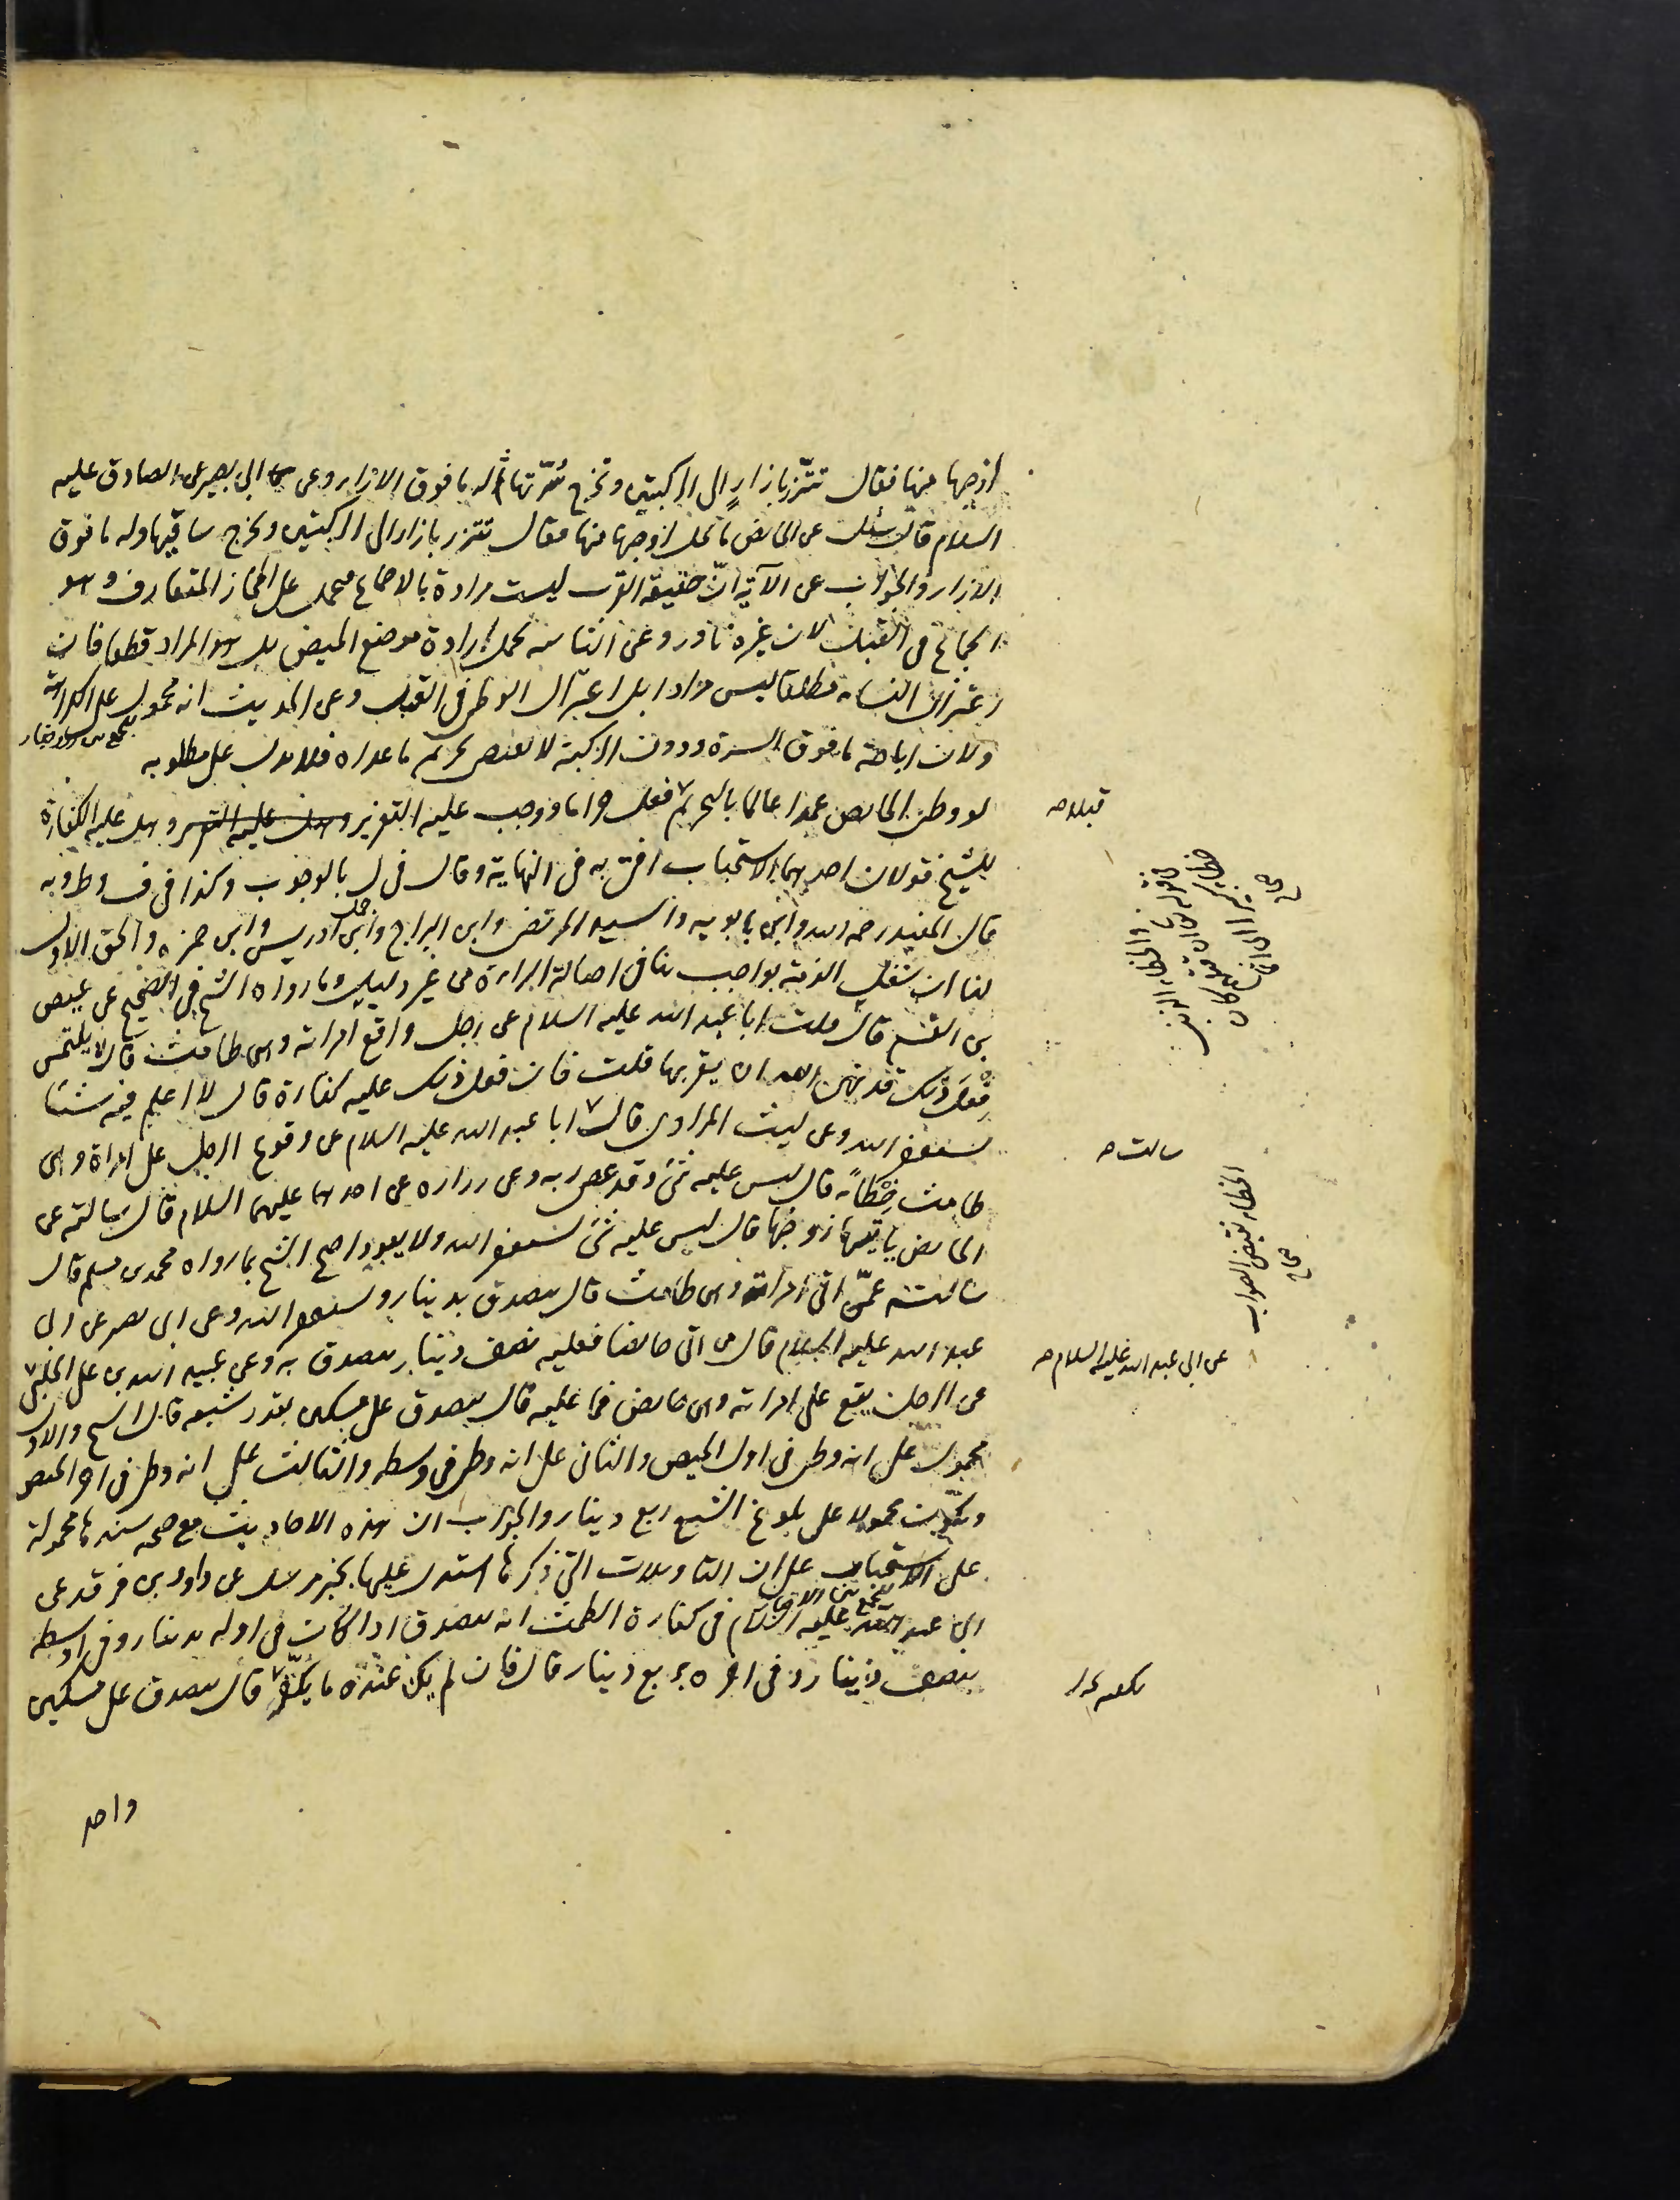 لزوجها منها فقال تتزر بازار الى الركبتين وتخرج سرتها ثم له ما فوق الازار وعن ابي بصير عن الصادق عليه
السلام قال سئل عن الحائض ما يحل لزوجها منها فقال تتزر بازار الى الركبتين وتخرج ساقيها وله ما فوق
الازار والجواب عن الآية انّ حقيقة القرب ليست مرادة بالاجماع فيحمل على المجاز المتعارف وهو
الجماع في القبل لان غيره نادر وعن الثانية نحمل ارادة موضع الحيض بل هو المراد قطعا فان
اعتزال النساء مطلقا ليس مرادا بل اعتزال الوطى في القبل وعن الحديث انه محمول على الكراهة
للجمع بين الاخبار
ولان اباحة ما فوق السرة ودون الركبة لا يقتضى تحريم ما عداه فلا يدل على مطلوبه
لو وطى الحائض عمدا عالما بالتحريم فعل حراما ووجب عليه التعزير وهل عليه الكفارة
قبلا صح
للشيخ قولان احدهما الاستحباب افتى به في النهاية وقال في ل بالوجوب وكذا في ف و ط وبه
قال المفيد رحمه الله وابن بابويه والسيد المرتضى وابن البراج وابن ادريس وابن حمزه والحق الاول
لنا ان شغل الذمة بواجب ينافى اصالة البراءة من غير دليل وما رواه الشيخ في الصحيح عن عيص
بن القسم قال سالت ابا عبد الله عليه السلام عن رجل واقع امراته وهى طامث قال لا يلتمس
فعل ذلك قد نهى الله ان يقربها قلت فان فعل ذلك عليه كفارة قال لا اعلم فيه شيئا
يستغفر الله وعن ليث المرادى قال ابا عبد الله عليه السلام عن وقوع الرجل على امراة وهى
سالت صح
طامث خطأ قال ليس عليه شئ وقد عصى ربه وعن زراره عن احدهما عليهما السلام قال سالته عن
الخطاء نقيض الصواب
صحاح
الحائض ياتيها زوجها قال ليس عليه شئ يستغفر الله ولا يعود احتج الشيخ بما رواه محمد بن مسلم قال
سالته عمّن اتى امراته وهى طامث قال يتصدق بدينار ويستغفر الله وعن ابى بصير عن ابى
عبد الله عليه السلام قال من اتى حائضا فعليه نصف دينار يتصدق به وعن عبيد الله بن على الحلبى
عن ابى عبد الله عليه السلام صح
عن الرجل يقع على امراته وهى حائض فما عليه قال يتصدق على مسكين بقدر شبعه قال الشيخ والاول
محمول على انه وطى في اول الحيض والثانى على انه وطى في وسطه والثالث على انه وطى في آخر الحيض
ويكون محمولا على بلوغ الشبع ربع دينار والجواب ان هذه الاحاديث مع صحة سندها محمولة
على الاستحباب على ان التاويلات التي ذكرها استدل عليها بخبر مرسل عن داود بن فرقد عن
ابى عبد الله عليه السلام في كفارة الطمث انه يتصدق اذا كان في اوله بدينار وفي اوسطه
بنصف دينار وفي آخره بربع دينار قال فان لم يكن عنده ما يكفّر قال يتصدق على مسكين
واحد